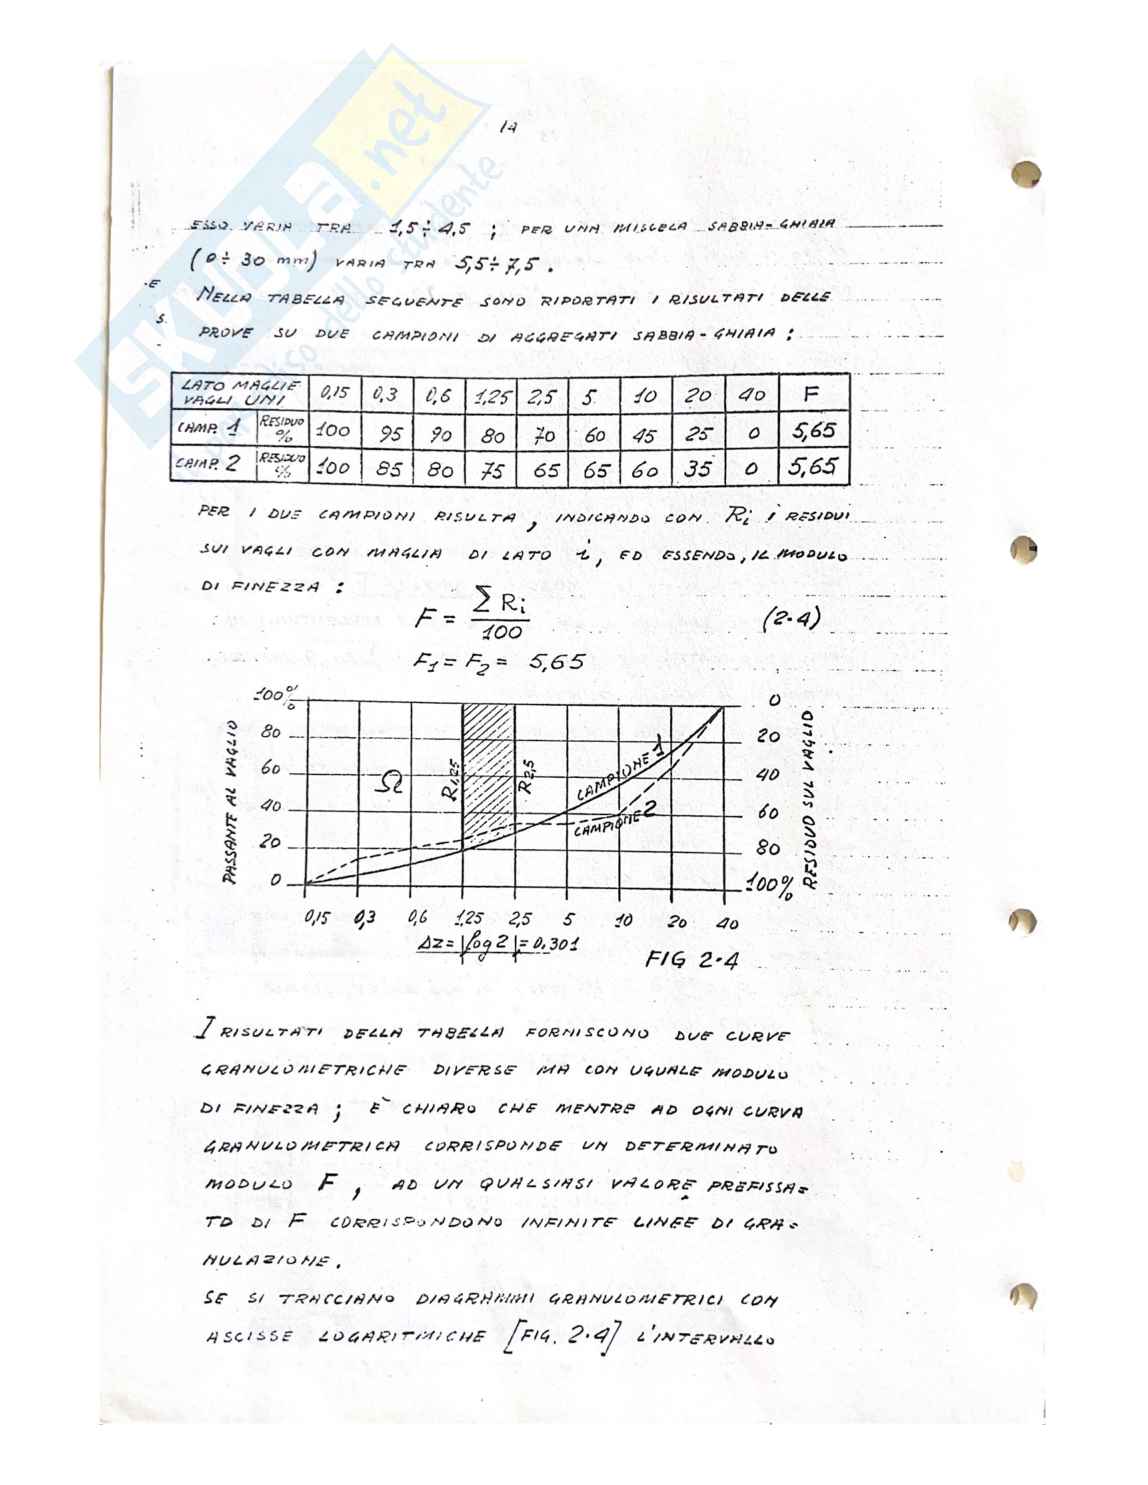 SKUOLA.net
paradiso dello studente
14
ESSO VARIA TRA 1,5÷4,5 ; PER UNA MISCELA SABBIA-GHIAIA
(0÷30 mm) VARIA TRA 5,5÷7,5.
E
NELLA TABELLA SEGUENTE SONO RIPORTATI I RISULTATI DELLE
S.
PROVE SU DUE CAMPIONI DI AGGREGATI SABBIA-GHIAIA :
LATO MAGLIE VAGLI UNI 0,15 0,3 0,6 1,25 2,5 5 10 20 40 F
CAMP. 1 RESIDUO % 100 95 90 80 70 60 45 25 0 5,65
CAMP. 2 RESIDUO % 100 85 80 75 65 65 60 35 0 5,65
PER I DUE CAMPIONI RISULTA, INDICANDO CON Ri i RESIDUI
SUI VAGLI CON MAGLIA DI LATO i, ED ESSENDO, IL MODULO
DI FINEZZA :
F = ∑ Ri / 100 (2.4)
F1 = F2 = 5,65
PASSANTE AL VAGLIO
100% 80 60 40 20 0
Ω
R1,25
R2,5
CAMPIONE 1
CAMPIONE 2
0 20 40 60 80 100%
RESIDUO SUL VAGLIO
0,15 0,3 0,6 1,25 2,5 5 10 20 40
Δz=|log2|=0.301
FIG 2.4
I RISULTATI DELLA TABELLA FORNISCONO DUE CURVE
GRANULOMETRICHE DIVERSE MA CON UGUALE MODULO
DI FINEZZA ; È CHIARO CHE MENTRE AD OGNI CURVA
GRANULOMETRICA CORRISPONDE UN DETERMINATO
MODULO F, AD UN QUALSIASI VALORE PREFISSA=
TO DI F CORRISPONDONO INFINITE LINEE DI GRA=
NULAZIONE.
SE SI TRACCIANO DIAGRAMMI GRANULOMETRICI CON
ASCISSE LOGARITMICHE [FIG. 2.4] L'INTERVALLO